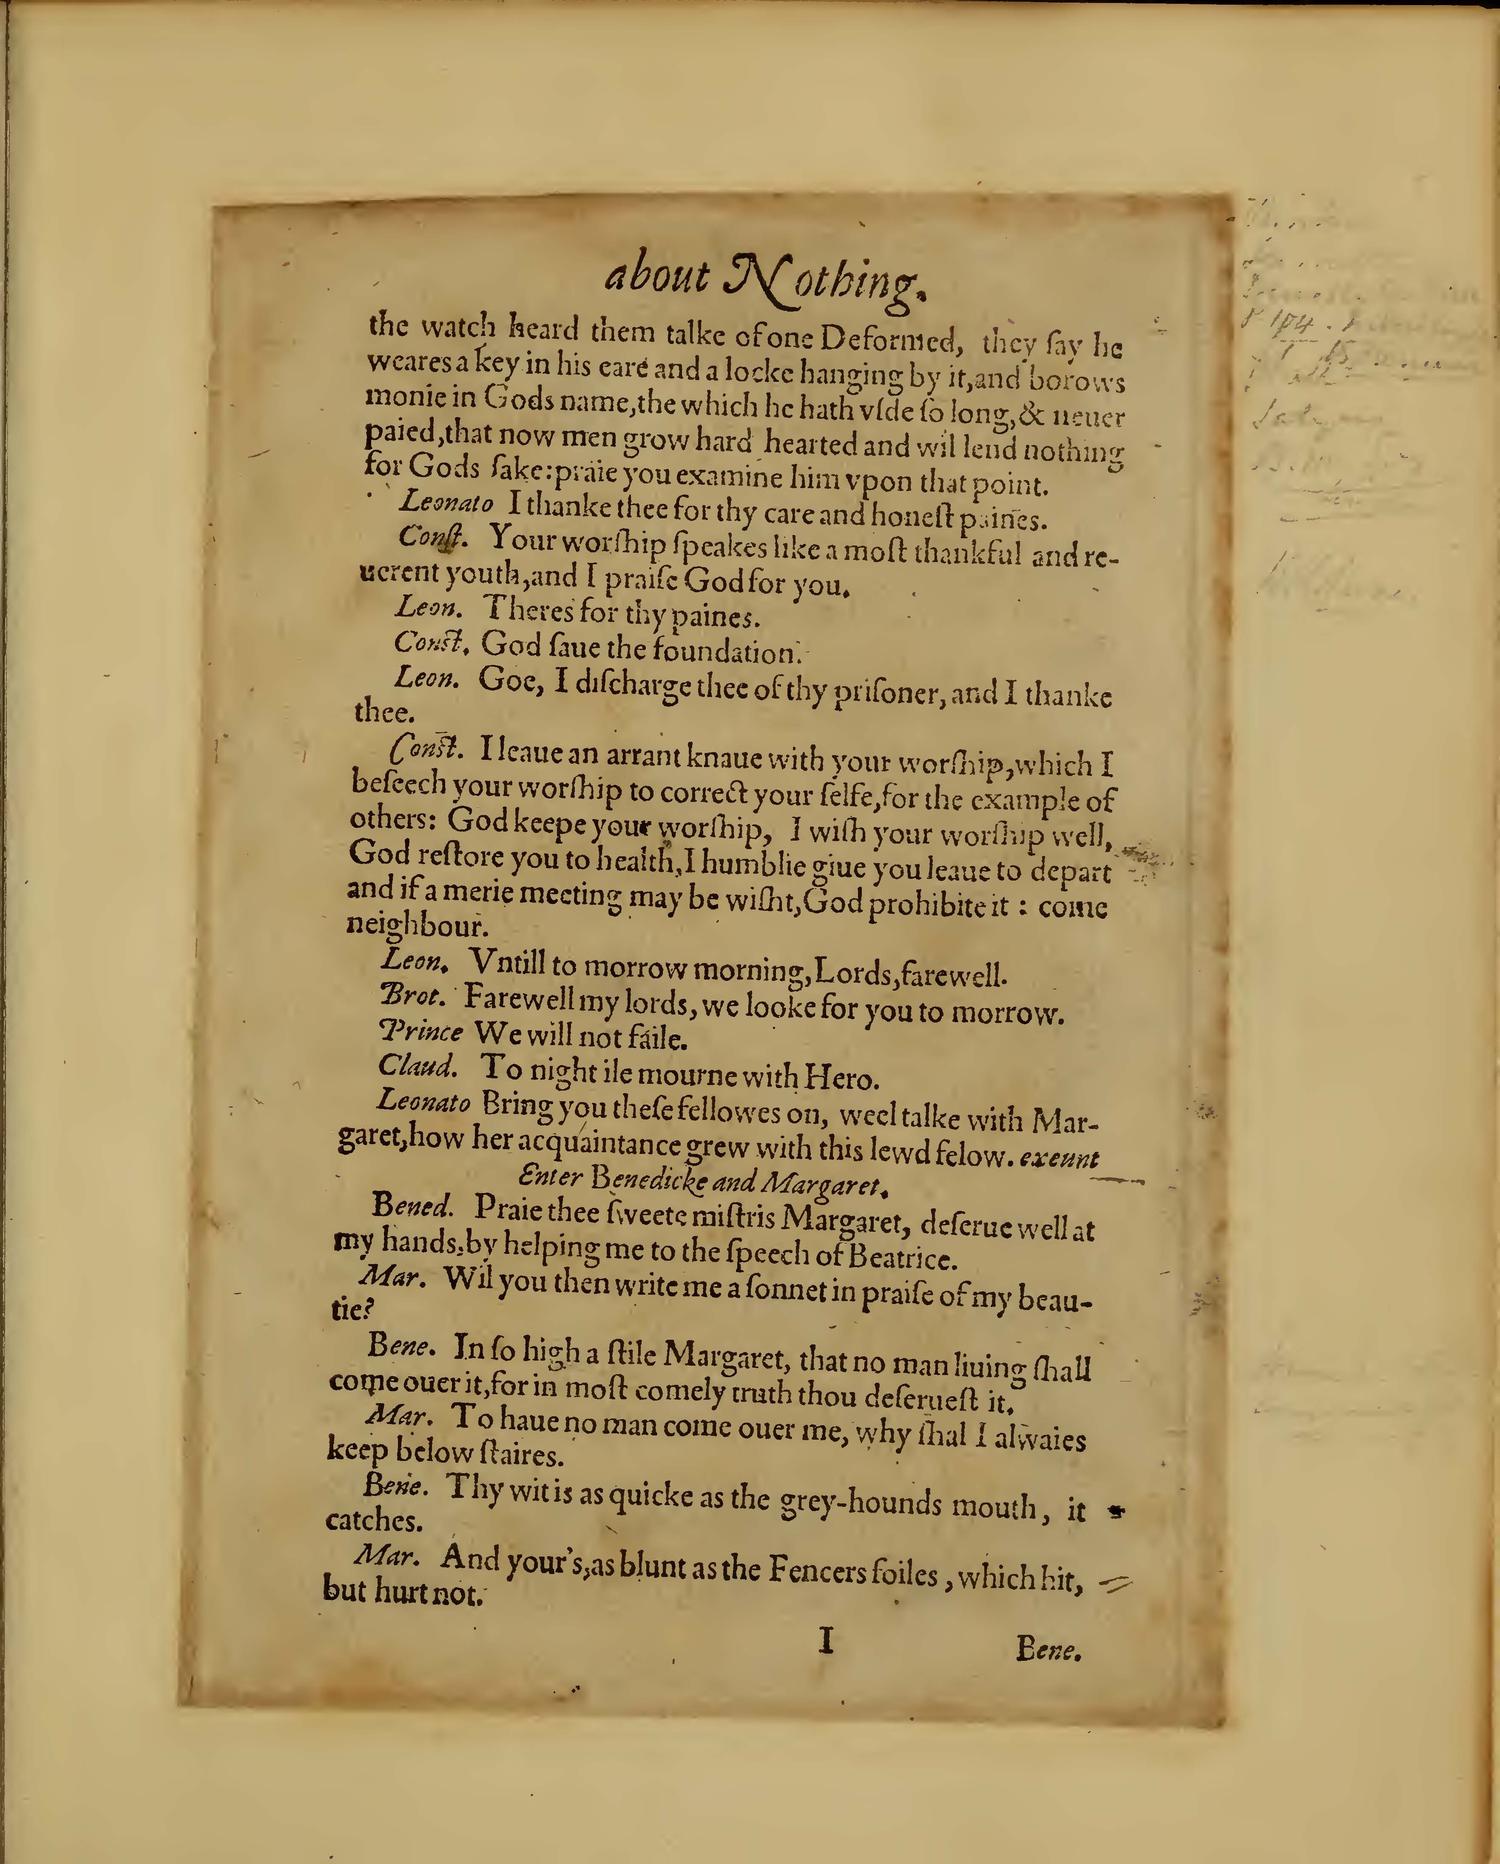 about Nothing.
the watch heard them talke of one Deformed, they ſay he
weares a key in his eare and a locke hanging by it, and borows
monie in Gods name, the which he hath vſde ſo long, & neuer
paied, that now men grow hard hearted and wil lend nothing
for Gods ſake: praie you examine him vpon that point.
Leonato I thanke thee for thy care and honeſt paines.
Conſt. Your worſhip ſpeakes like a moſt thankful and re-
uerent youth, and I praiſe God for you.
Leon. Theres for thy paines.
Conſt. God ſaue the foundation.
Leon. Goe, I diſcharge thee of thy priſoner, and I thanke
thee.
Conſt. I leaue an arrant knaue with your worſhip, which I
beſeech your worſhip to correct your ſelfe, for the example of
others: God keepe your worſhip, I wiſh your worſhip well,
God reſtore you to health, I humblie giue you leaue to depart
and if a merie meeting may be wiſht, God prohibite it : come
neighbour.
Leon. Vntill to morrow morning, Lords, farewell.
Brot. Farewell my lords, we looke for you to morrow.
Prince We will not faile.
Claud. To night ile mourne with Hero.
Leonato Bring you theſe fellowes on, weel talke with Mar-
garet, how her acquaintance grew with this lewd felow. exeunt
Enter Benedicke and Margaret.
Bened. Praie thee ſweete miſtris Margaret, deſerue well at
my hands, by helping me to the ſpeech of Beatrice.
Mar. Wil you then write me a ſonnet in praiſe of my beau-
tie?
Bene. In ſo high a ſtile Margaret, that no man liuing ſhall
come ouer it, for in moſt comely truth thou deſerueſt it.
Mar. To haue no man come ouer me, why ſhal I alwaies
keep below ſtaires.
Bene. Thy wit is as quicke as the grey-hounds mouth, it
catches.
Mar. And your's, as blunt as the Fencers foiles, which hit,
but hurt not.
I Bene.